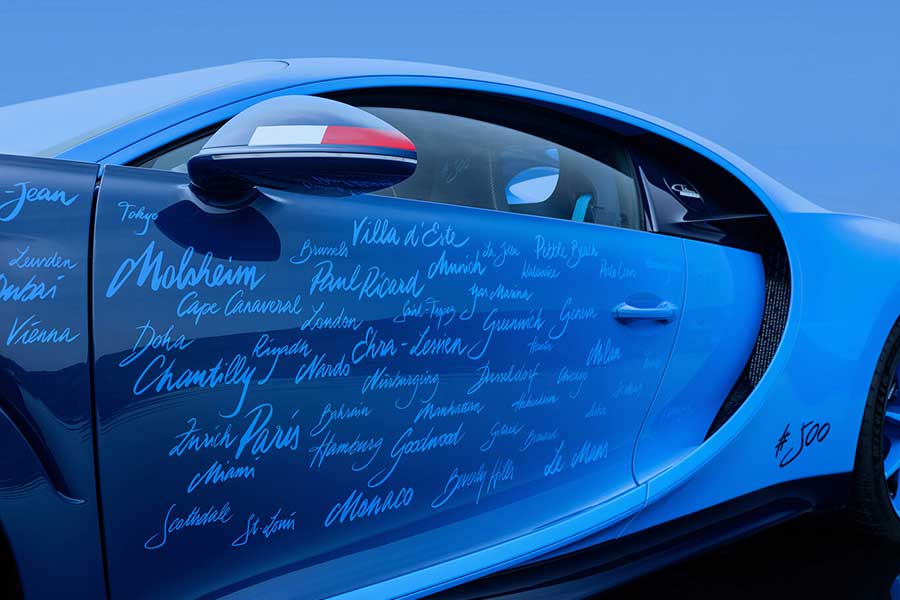 -Jean
Leuvden
Dubai
Vienna
Tokyo
Brussels
Villa d'Este
Molsheim
Paul Ricard
Munich
La Jolla
Pebble Beach
Cape Canaveral
Saint-Tropez
Yas Marina
London
Greenwich
Geneva
Doha
Riyadh
Nardo
Ehra-Lessien
Milan
Chantilly
Nürburgring
Dusseldorf
Chicago
Zürich
Paris
Bahrain
Manhattan
Hamburg
Goodwood
Miami
Beverly Hills
Le Mans
Scottsdale
St-Louis
Monaco
#500